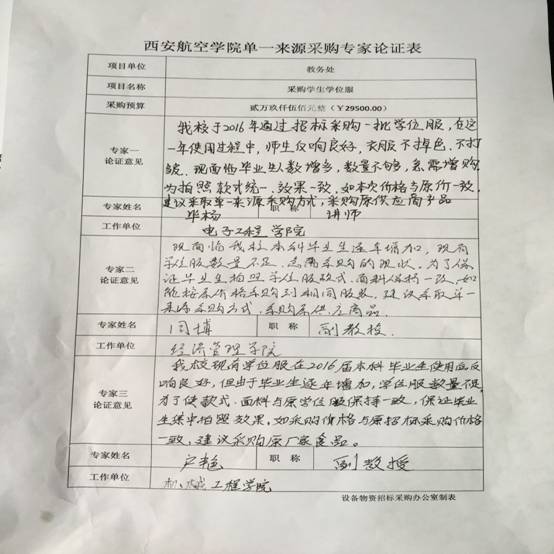 西安航空学院单一来源采购专家论证表
项目单位 教务处
项目名称 采购学生学位服
采购预算 贰万玖仟伍佰元整（￥29500.00）
专家一
论证意见
我校于2016年通过招标采购一批学位服，在这
一年使用过程中，师生反响良好，衣服不掉色、不打
皱。现面临毕业生人数增多，数量不够，急需增购
为拍照款式统一、效果一致，如本次价格与原价一致，
建议采取单一来源采购方式，采购原供应商产品
专家姓名 毕杨 职 称 讲师
工作单位 电子工程学院
专家二
论证意见
现面临我校本科毕业生逐年增加，现有
学位服数量不足，急需采购的现状。为了保
证毕业生拍照学位服款式、面料保持一致，如
能按原价格采购到相同服装，建议采取单一
来源采购方式，采购原供应商品。
专家姓名 闫博 职 称 副教授
工作单位 经济管理学院
专家三
论证意见
我校现有学位服在2016届本科毕业生使用后反
响良好，但由于毕业生逐年增加，学位服数量不足，
为了使款式、面料与原学位服保持一致，保证毕业
生集中拍照效果。如采购价格与原招标采购价格
一致，建议采购原厂家产品。
专家姓名 卢艳 职 称 副教授
工作单位 机械工程学院
设备物资招标采购办公室制表